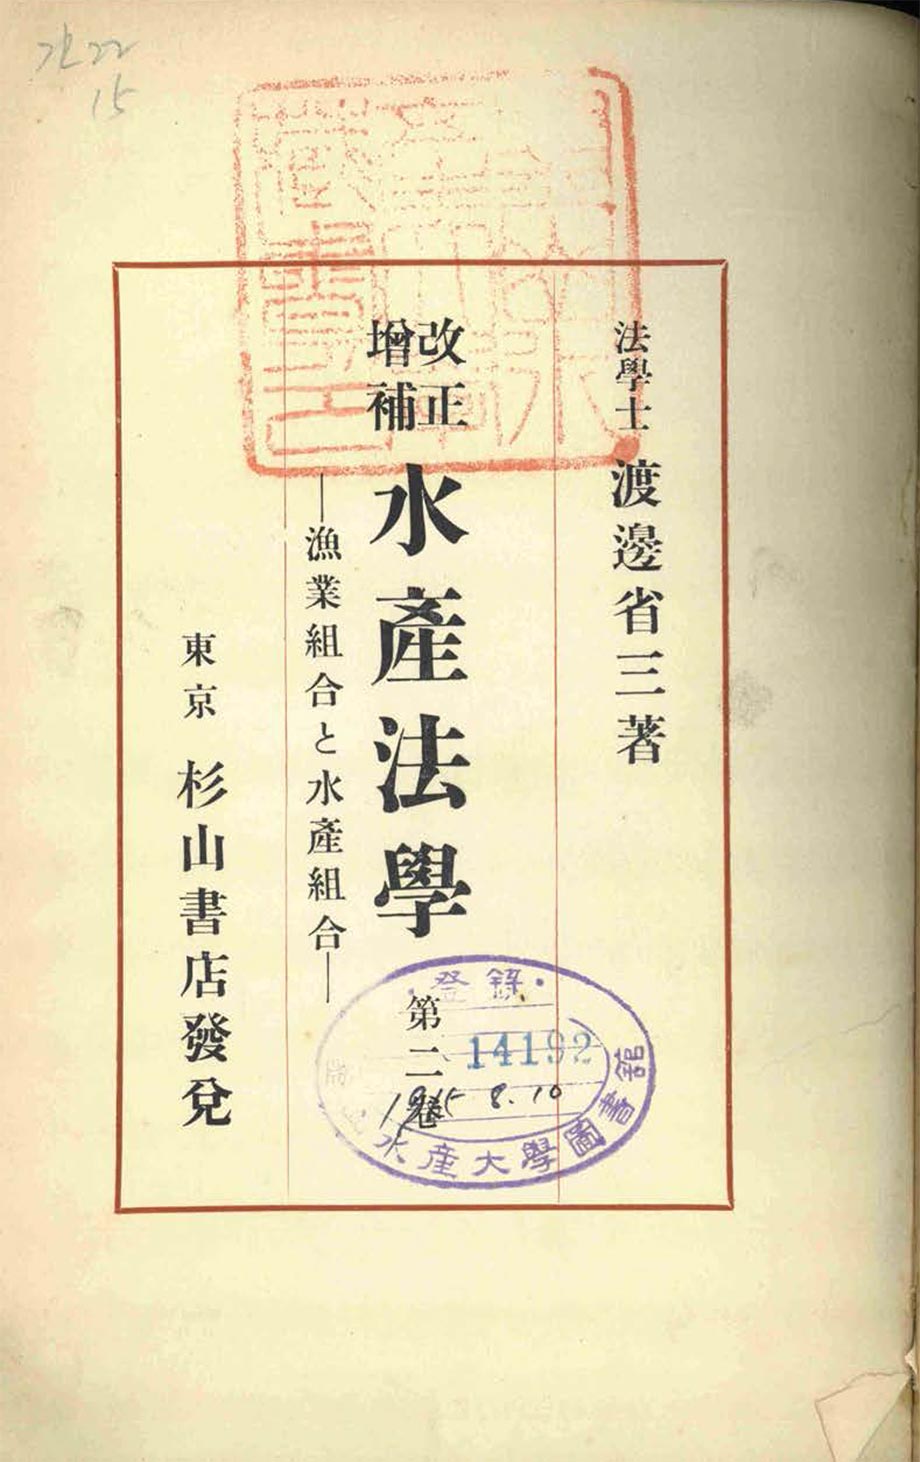 法學士 渡邊省三著
改正
增補
水產法學 第二卷
―漁業組合と水產組合―
東京 杉山書店發兌
登錄
14192
8.10
水產大學圖書館
22
15